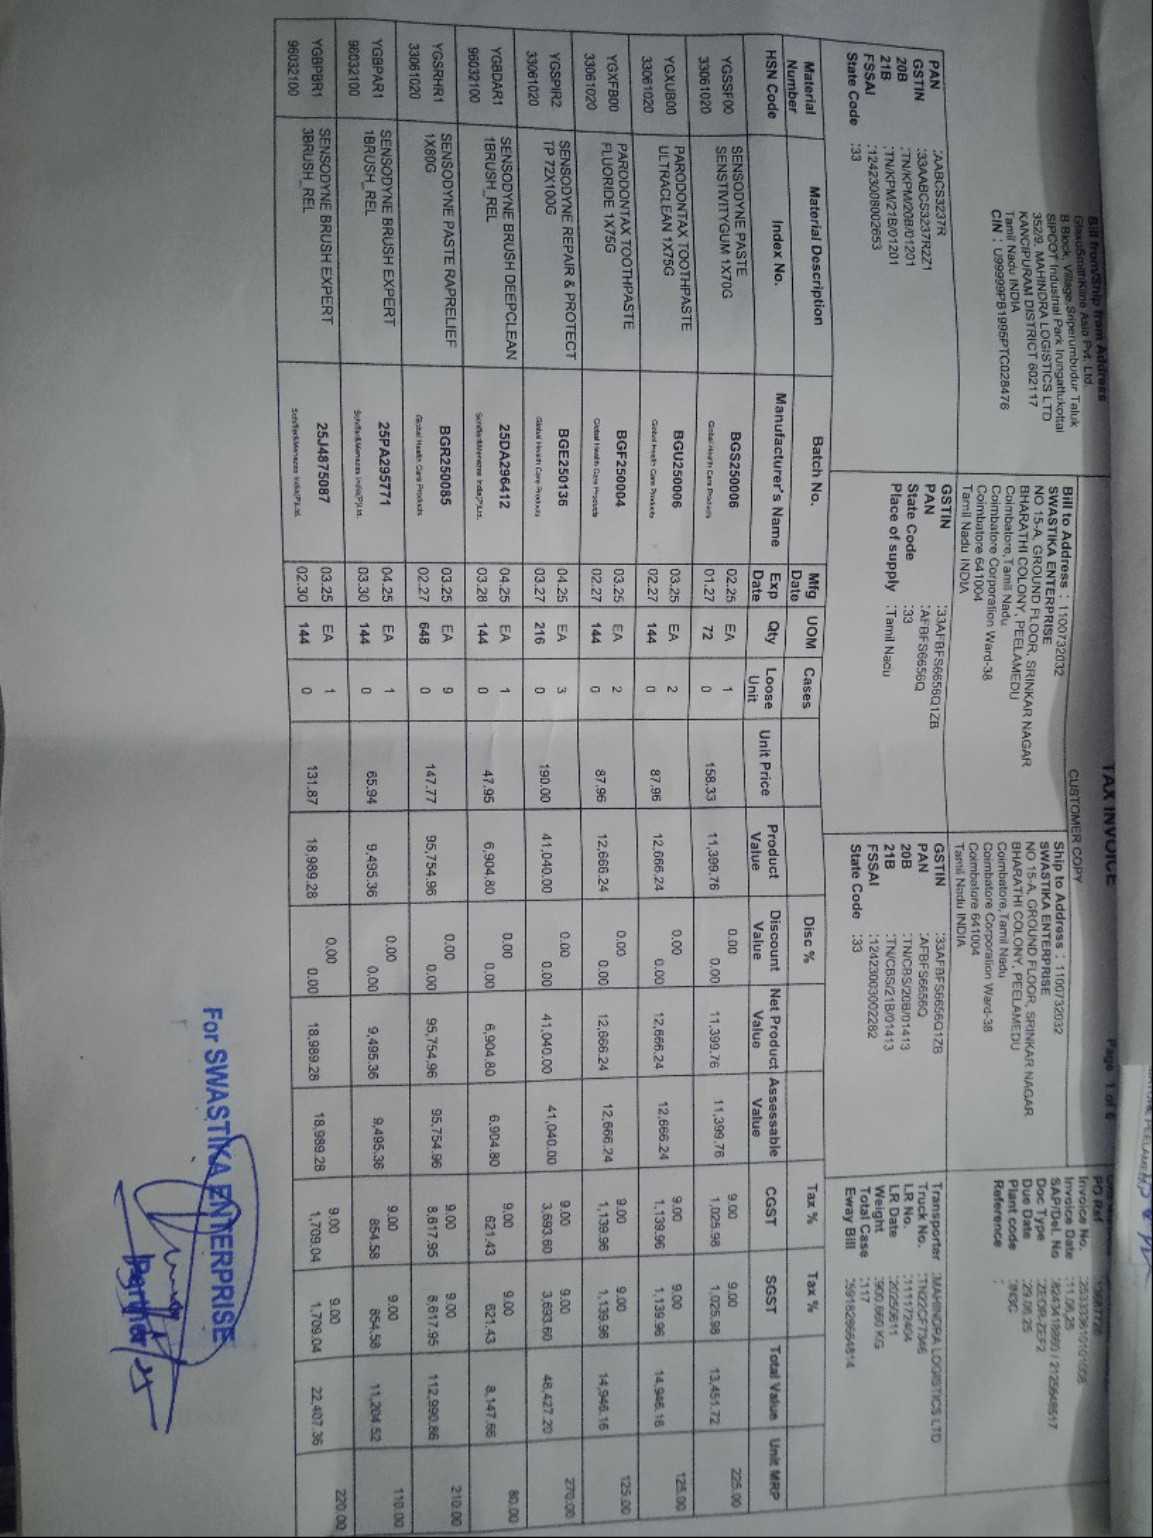 TAX INVOICE
Page 1 of 6
CUSTOMER COPY
Bill from/Ship from Address
GlaxoSmithKline Asia Pvt. Ltd.
B Block, Village,Sriperumbudur Taluk
SIPCOT Industrial Park Irungattukottai
352/9, MAHINDRA LOGISTICS LTD
KANCIPURAM DISTRICT 602117
Tamil Nadu INDIA
CIN : U99999PB1995PTC028476
PAN :AABCS3237R
GSTIN :33AABCS3237R2Z1
20B :TN/KPM/20B/01201
21B :TN/KPM/21B/01201
FSSAI :12423008002653
State Code :33
Bill to Address : 1100732032
SWASTIKA ENTERPRISE
NO 15-A, GROUND FLOOR, SRINKAR NAGAR
BHARATHI COLONY, PEELAMEDU
Coimbatore,Tamil Nadu
Coimbatore Corporation Ward-38
Coimbatore 641004
Tamil Nadu INDIA
GSTIN :33AFBFS6656Q1ZB
PAN :AFBFS6656Q
State Code :33
Place of supply :Tamil Nadu
Ship to Address : 1100732032
SWASTIKA ENTERPRISE
NO 15-A, GROUND FLOOR, SRINKAR NAGAR
BHARATHI COLONY, PEELAMEDU
Coimbatore,Tamil Nadu
Coimbatore Corporation Ward-38
Coimbatore 641004
Tamil Nadu INDIA
GSTIN :33AFBFS6656Q1ZB
PAN :AFBFS6656Q
20B :TN/CBS/20B/01413
21B :TN/CBS/21B/01413
FSSAI :12423003002282
State Code :33
PO Ref
Invoice No.
Invoice Date :11.06.25
SAP/Del. No
Doc Type :ZEOR-ZEF2
Due Date :29.06.25
Plant code :IN3C
Reference :
Transporter :MAHINDRA LOGISTICS LTD
Truck No. :TN22CF7366
LR No. :111172404
LR Date :20250611
Weight :900.660 KG
Total Case :117
Eway Bill :591828664814
Material Number Material Description Batch No. Mfg Date UOM Cases Disc % Tax % Tax %
HSN Code Index No. Manufacturer's Name Exp Date Qty Loose Unit Unit Price Product Value Discount Value Net Product Value Assessable Value CGST SGST Total Value Unit MRP
YGSSF00 SENSODYNE PASTE BGS250006 02.25 EA 1 0.00 9.00 9.00 225.00
33061020 SENSTIVITYGUM 1X70G Global Health Care Products 01.27 72 0 158.33 11,399.76 0.00 11,399.76 11,399.76 1,025.98 1,025.98 13,451.72
YGXUB00 PARODONTAX TOOTHPASTE BGU250006 03.25 EA 2 0.00 9.00 9.00 125.00
33061020 ULTRACLEAN 1X75G Global Health Care Products 02.27 144 0 87.96 12,666.24 0.00 12,666.24 12,666.24 1,139.96 1,139.96 14,946.16
YGXFB00 PARODONTAX TOOTHPASTE BGF250004 03.25 EA 2 0.00 9.00 9.00 125.00
33061020 FLUORIDE 1X75G Global Health Care Products 02.27 144 0 87.96 12,666.24 0.00 12,666.24 12,666.24 1,139.96 1,139.96 14,946.16
YGSPIR2 SENSODYNE REPAIR & PROTECT BGE250136 04.25 EA 3 0.00 9.00 9.00 270.00
33061020 TP 72X100G Global Health Care Products 03.27 216 0 190.00 41,040.00 0.00 41,040.00 41,040.00 3,693.60 3,693.60 48,427.20
YGBDAR1 SENSODYNE BRUSH DEEPCLEAN 25DA296412 04.25 EA 1 0.00 9.00 9.00 80.00
96032100 1BRUSH_REL 03.28 144 0 47.95 6,904.80 0.00 6,904.80 6,904.80 621.43 621.43 8,147.66
YGSRHR1 SENSODYNE PASTE RAPRELIEF BGR250085 03.25 EA 9 0.00 9.00 9.00 210.00
33061020 1X80G Global Health Care Products 02.27 648 0 147.77 95,754.96 0.00 95,754.96 95,754.96 8,617.95 8,617.95 112,990.86
YGBPAR1 SENSODYNE BRUSH EXPERT 25PA295771 04.25 EA 1 0.00 9.00 9.00 110.00
96032100 1BRUSH_REL 03.30 144 0 65.94 9,495.36 0.00 9,495.36 9,495.36 854.58 854.58 11,204.52
YGBPBR1 SENSODYNE BRUSH EXPERT 25J4875087 03.25 EA 1 0.00 9.00 9.00 220.00
96032100 3BRUSH_REL 02.30 144 0 131.87 18,989.28 0.00 18,989.28 18,989.28 1,709.04 1,709.04 22,407.36
For SWASTIKA ENTERPRISE
Partner